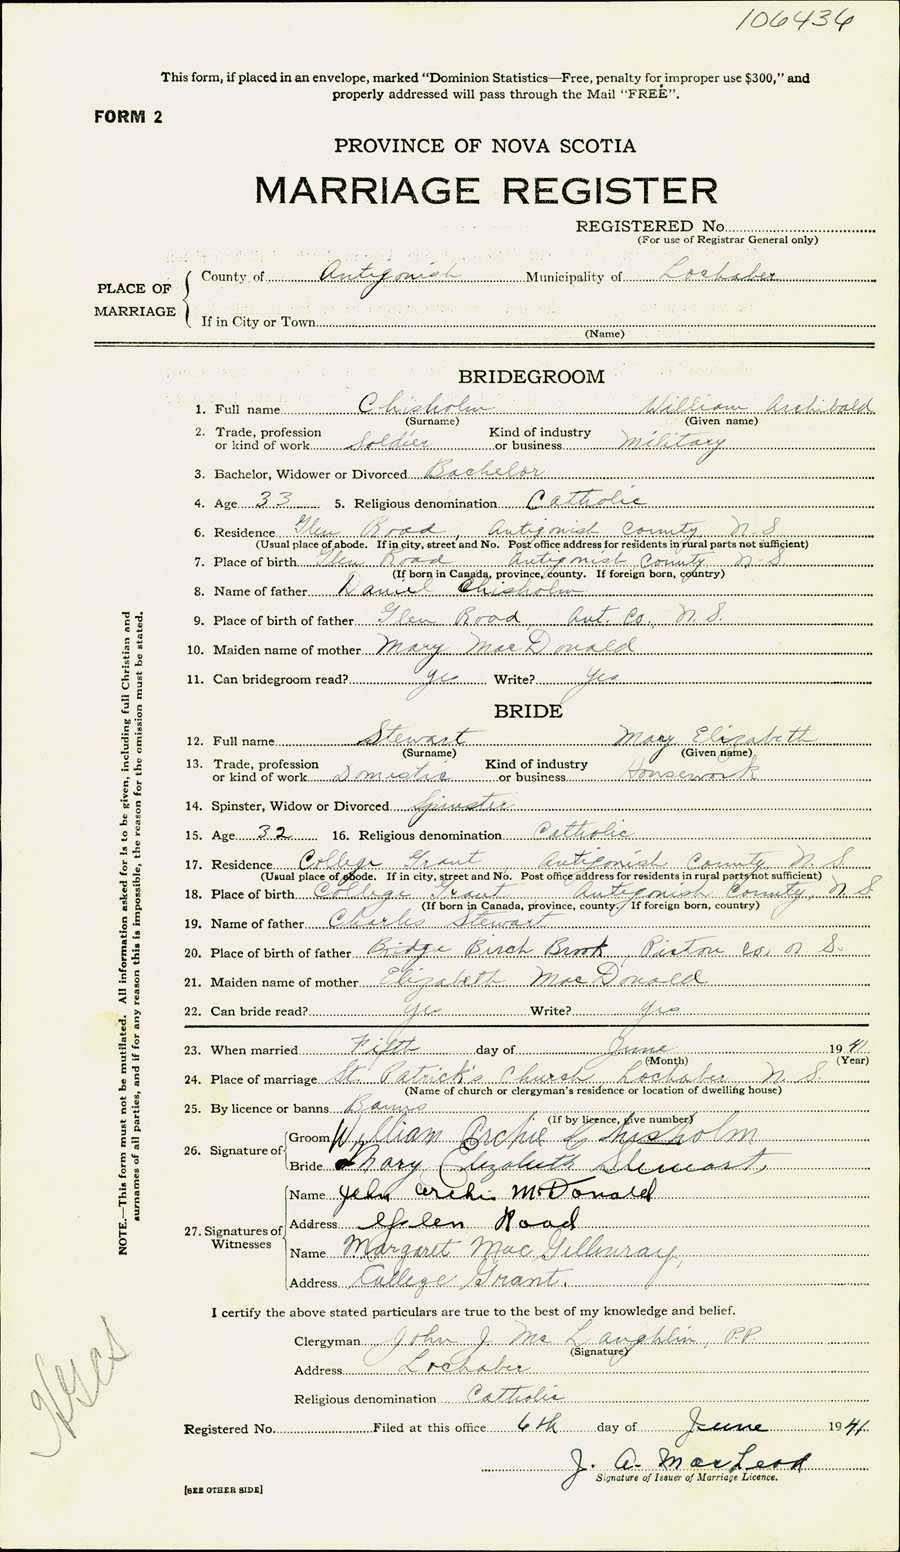 106436
This form, if placed in an envelope, marked “Dominion Statistics—Free, penalty for improper use $300,” and
properly addressed will pass through the Mail “FREE”.
FORM 2
PROVINCE OF NOVA SCOTIA
MARRIAGE REGISTER
REGISTERED No.
(For use of Registrar General only)
PLACE OF MARRIAGE
County of Antigonish Municipality of Lochaber
If in City or Town
(Name)
BRIDEGROOM
1. Full name Chisholm William Archibald
(Surname) (Given name)
2. Trade, profession or kind of work Soldier Kind of industry or business Military
3. Bachelor, Widower or Divorced Bachelor
4. Age 33 5. Religious denomination Catholic
6. Residence Glen Road, Antigonish County N.S.
(Usual place of abode. If in city, street and No. Post office address for residents in rural parts not sufficient)
7. Place of birth Glen Road Antigonish County N.S.
(If born in Canada, province, county. If foreign born, country)
8. Name of father Daniel Chisholm
9. Place of birth of father Glen Road, Ant. Co., N.S.
10. Maiden name of mother Mary MacDonald
11. Can bridegroom read? yes Write? yes
BRIDE
12. Full name Stewart Mary Elizabeth
(Surname) (Given name)
13. Trade, profession or kind of work Domestic Kind of industry or business Housework
14. Spinster, Widow or Divorced Spinster
15. Age 32 16. Religious denomination Catholic
17. Residence College Grant Antigonish County N.S.
(Usual place of abode. If in city, street and No. Post office address for residents in rural parts not sufficient)
18. Place of birth College Grant Antigonish County, N.S.
(If born in Canada, province, county. If foreign born, country)
19. Name of father Charles Stewart
20. Place of birth of father Bridge Birch Brook, Pictou Co. N.S.
21. Maiden name of mother Elizabeth MacDonald
22. Can bride read? yes Write? yes
23. When married Fifth day of June 1941
(Month) (Year)
24. Place of marriage St. Patrick's Church Lochaber N.S.
(Name of church or clergyman's residence or location of dwelling house)
25. By licence or banns Banns
(If by licence, give number)
26. Signature of
Groom William Archie Chisholm
Bride Mary Elizabeth Stewart,
27. Signatures of Witnesses
Name John Archie McDonald
Address Glen Road
Name Margaret MacGillivray,
Address College Grant.
I certify the above stated particulars are true to the best of my knowledge and belief.
Clergyman John J. McLaughlin, P.P.
(Signature)
Address Lochaber
Religious denomination Catholic
Registered No. Filed at this office 6th day of June 1941
J. A. MacLeod
Signature of Issuer of Marriage Licence.
[SEE OTHER SIDE]
NOTE.—This form must not be mutilated. All information asked for is to be given, including full Christian and
surnames of all parties, and if for any reason this is impossible, the reason for the omission must be stated.